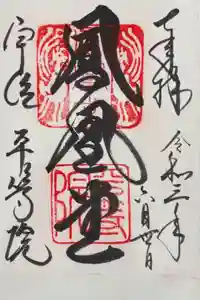 奉拝
令和三年
六月廿日
鳳凰堂
宇治
平等院